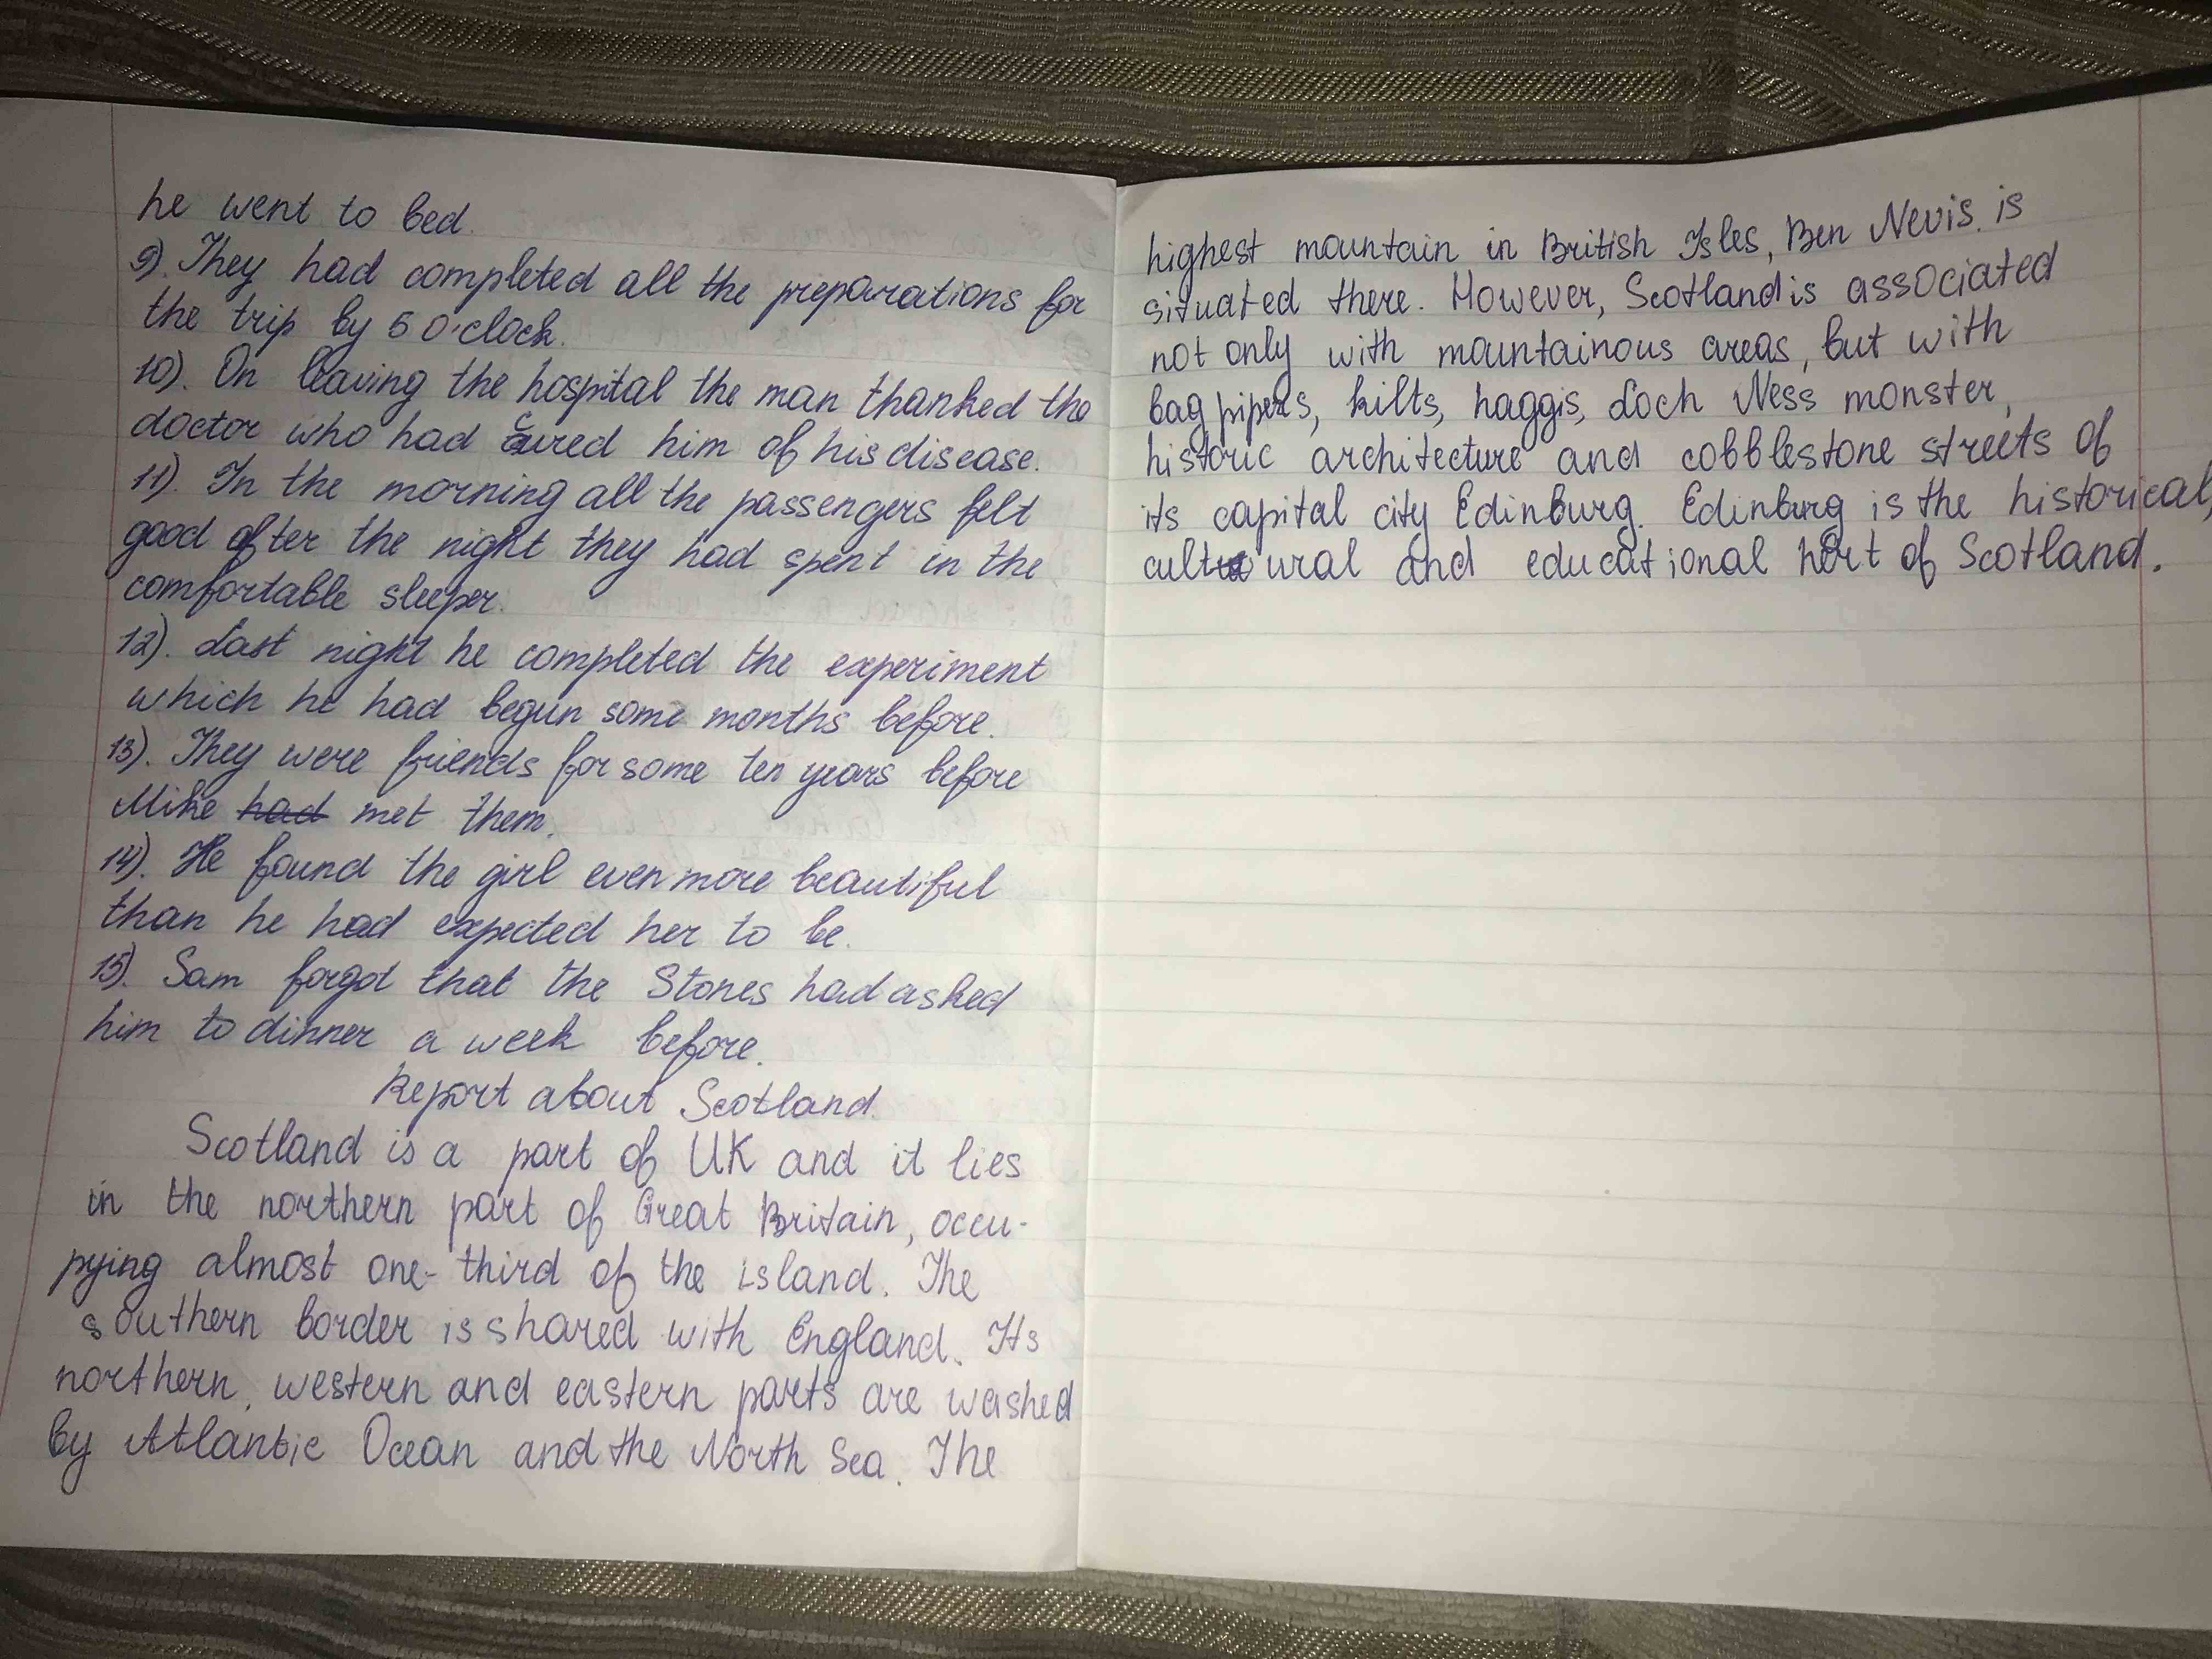 he went to bed.
9). They had completed all the preparations for
the trip by 5 o'clock.
10). On leaving the hospital the man thanked the
doctor who had cured him of his disease.
11). In the morning all the passengers felt
good after the night they had spent in the
comfortable sleeper.
12). Last night he completed the experiment
which he had begun some months before.
13). They were friends for some ten years before
Mike had met them.
14). He found the girl even more beautiful
than he had expected her to be.
15). Sam forgot that the Stones had asked
him to dinner a week before.
Report about Scotland.
Scotland is a part of UK and it lies
in the northern part of Great Britain, occu-
pying almost one-third of the island. The
southern border is shared with England. Its
northern, western and eastern parts are washed
by Atlantic Ocean and the North Sea. The
highest mountain in British Isles, Ben Nevis, is
situated there. However, Scotland is associated
not only with mountainous areas, but with
bagpipers, kilts, haggis, Loch Ness monster,
historic architecture and cobblestone streets of
its capital city Edinburg. Edinburg is the historical,
cultural and educational hert of Scotland.